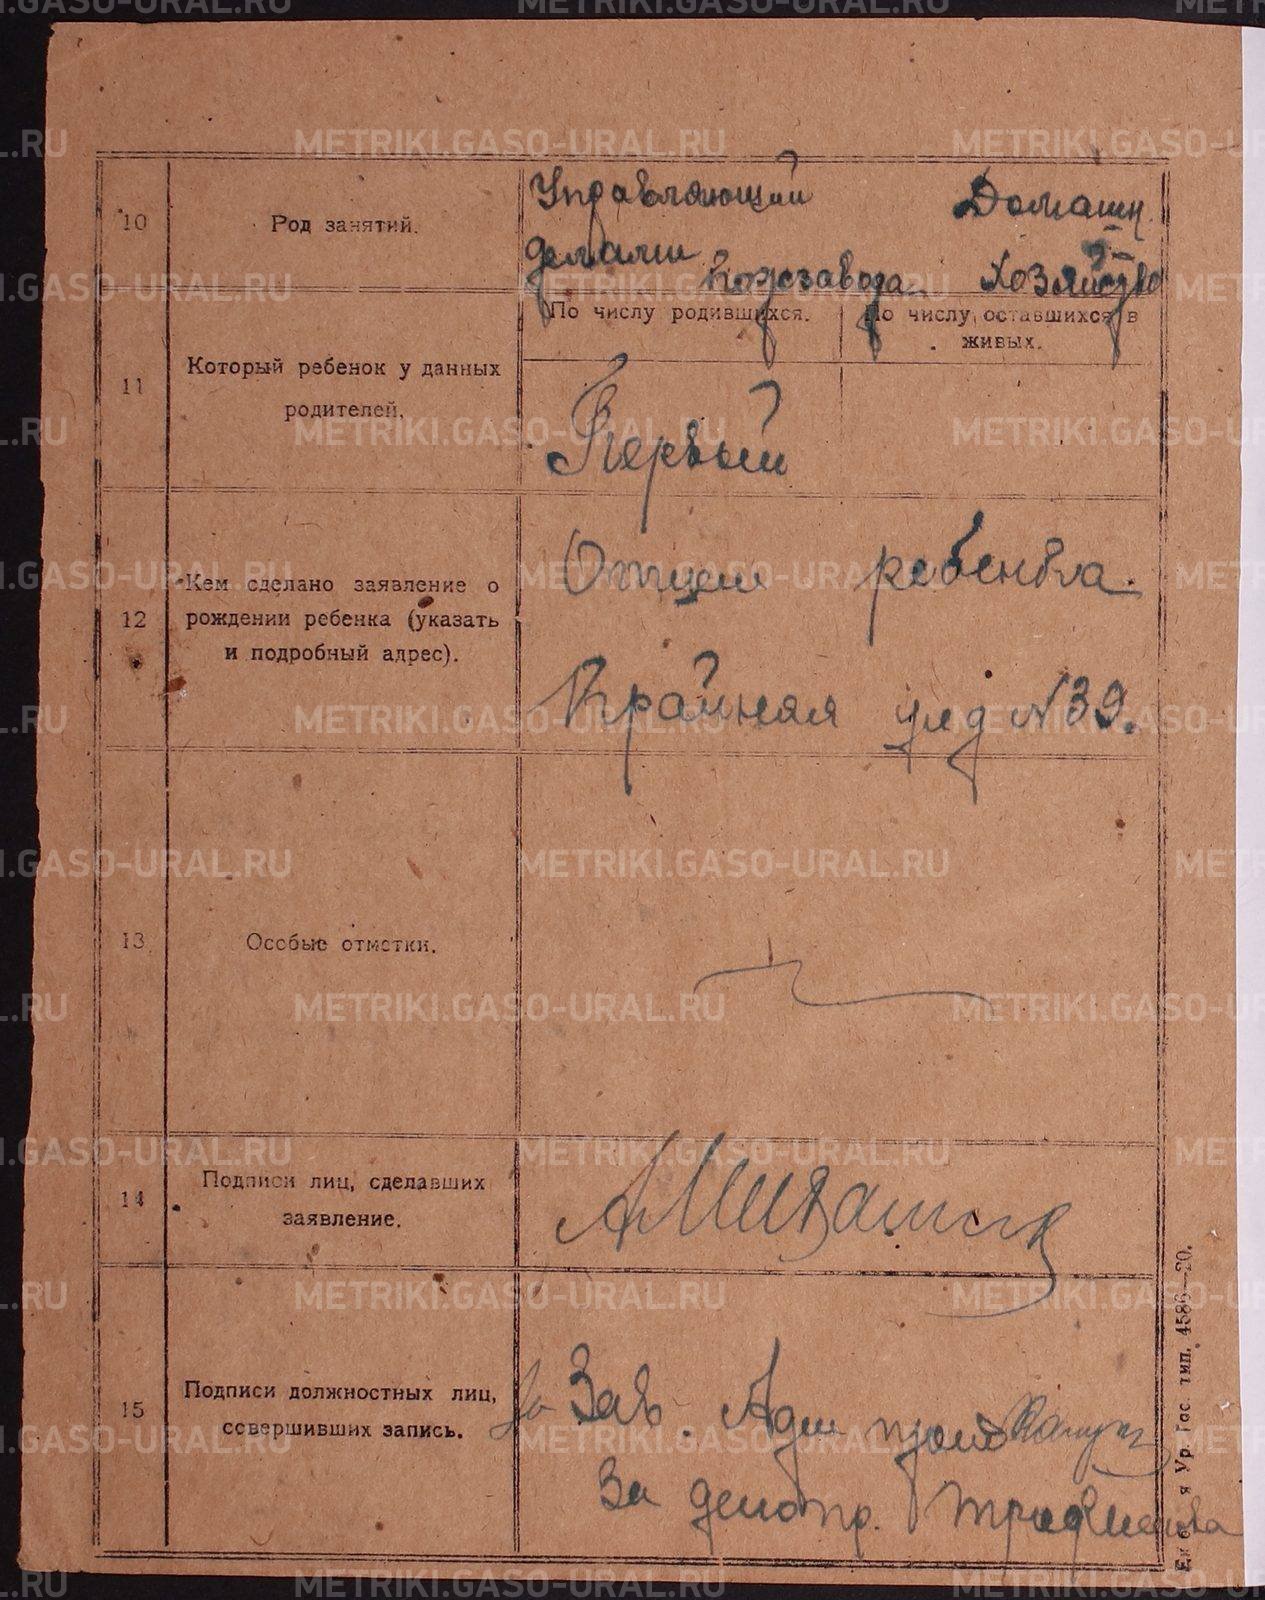 10
Род занятий.
Управляющий
делами
кожзавода
Домашн.
Хозяйство
11
Который ребенок у данных
родителей.
По числу родившихся.
По числу оставшихся в
живых.
Первый
12
Кем сделано заявление о
рождении ребенка (указать
и подробный адрес).
Отцем ребенка.
Крайняя ул д №39.
13
Особые отметки.
14
Подписи лиц, сделавших
заявление.
15
Подписи должностных лиц,
совершивших запись.
За Зав. Адм
За делопр.
Ур. Гос. тип. 4586—20.
METRIKI.GASO-URAL.RU